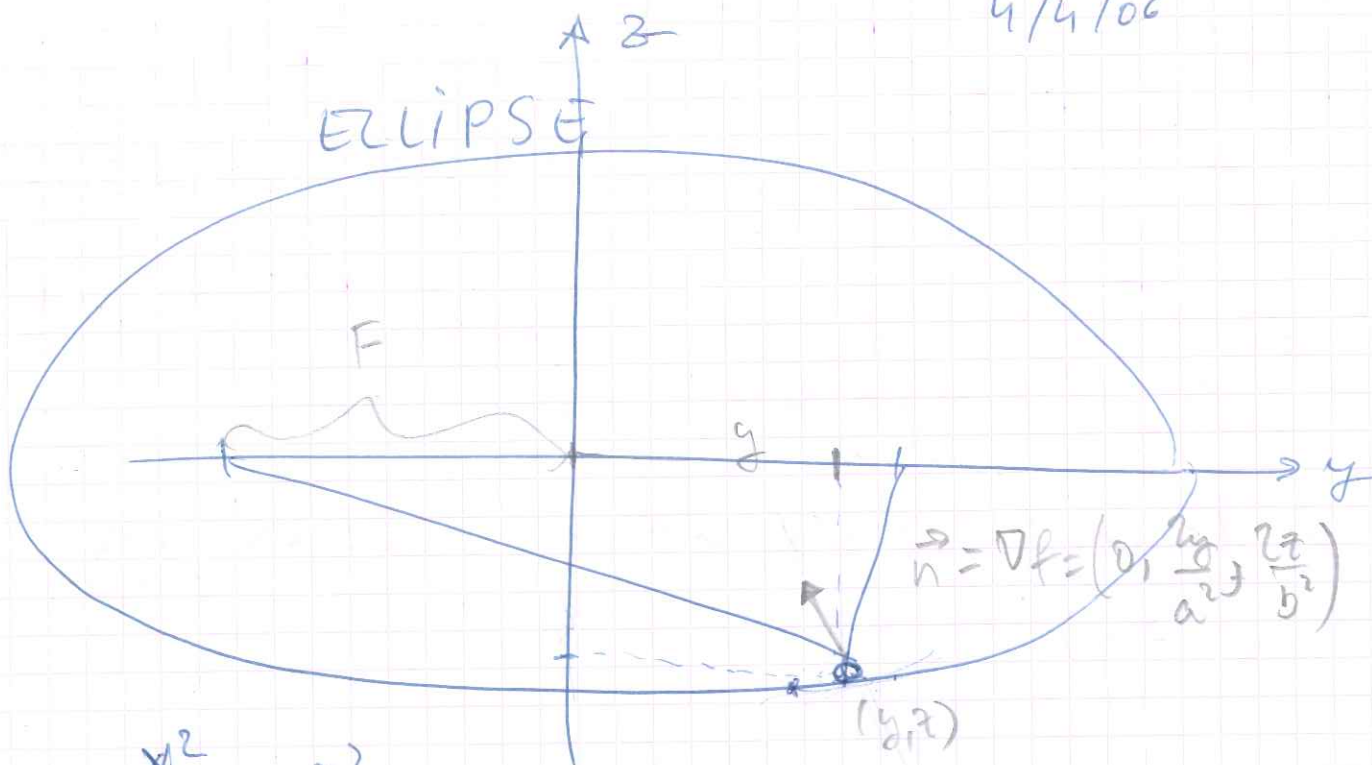 4/4/06
z
ELLIPSE
F
y
y
n⃗ = ∇f = (0, 2y/a², 2z/b²)
(y,z)